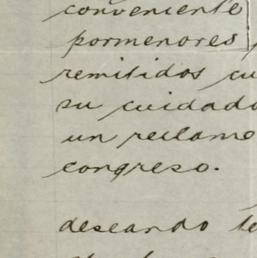 conveniente
pormenores
remitidos cu
su cuidado
un reclamo
congreso.
deseando te